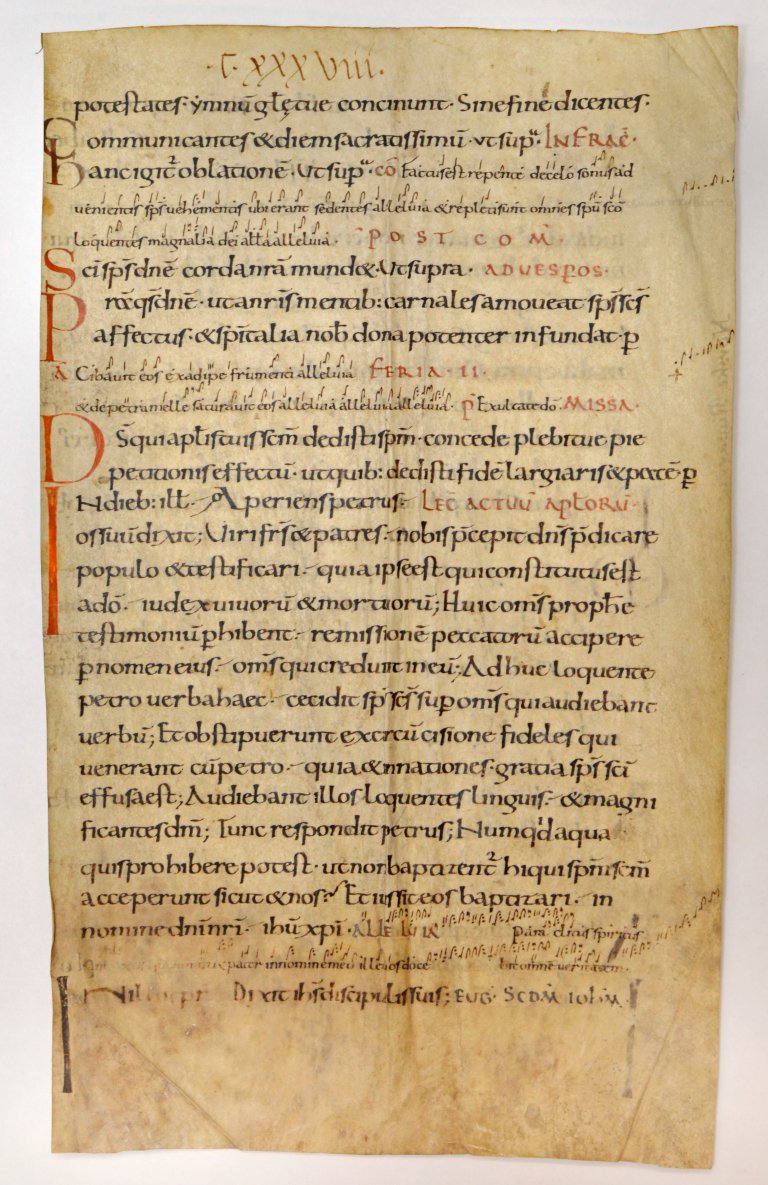 ·C·XXXVIII·
potestates· ymnũ gł̨ę tuę concinunt· Sine fine dicentes·
Communicantes & diem sacratissimũ· ut sup̃· INFRA AC̃·
Hanc igit̃ oblationẽ· Ut sup̃· CÕ Factus est repente de celo sonus ad
uenientis sp̃s uehementis ubi erant sedentes alleluia & repleti sunt omnes sp̃u sc̃o
loquentes magnalia dei all̃a alleluia· POST COM̃·
Sc̃i sp̃s dñe corda nr̃a mund&· Ut supra· AD UESP̃OS·
Pręs̃ q̃s dñe· ut a nr̃is mentib: carnales amoueat sp̃s sc̃s
affectus· & sp̃italia nob̃ dona potenter infundat· p̃
Ã Cibauit eos ex adipe frumenti alleluia FERIA II·
& de petra melle saturauit eos alleluia alleluia alleluia· p̃ Exultate dõ· MISSA·
D̃S qui apł̃is tuis sc̃m dedisti sp̃m· concede plebi tuę pię
petitionis effectũ· ut quib: dedisti fidẽ largiaris & pacẽ· p̃
IN dieb: ill̃· Aperiens petrus· LEC̃ ACTUŨ APŁ̃ORŨ·
os suũ dixit; Uiri fr̃s & patres· nobis p̃cepit dñs p̃dicare
populo & testificari· quia ipse est qui constitutus est
a dõ· iudex uiuorũ & mortuorũ; Huic om̃s proph̃ę
testimoniũ p̃hibent· remissionẽ peccatorũ accipere
p̃ nomen eius· om̃s qui credunt in eũ; Adhuc loquente
petro uerba haec· cecidit sp̃s sc̃s sup̃ om̃s qui audiebant
uerbũ; Et obstipuerunt ex circũcisione fideles qui
uenerant cũ petro· quia & in nationes gratia sp̃s sc̃i
effusa est; Audiebant illos loquentes linguis· & magni
ficantes dm̃; Tunc respondit petrus; Numq̃d aqua
quis prohibere potest· ut non baptizent̃ hi qui sp̃m sc̃m
acceperunt sicut & nos? Et iussit eos baptizari· in
nomine dñi nr̃i· ihũ xpĩ· ALLELUIA Paraclitus spiritus
pater in nomine meo ille uos doce bit omnẽ ueritatem·
IN Dixit ihs̃ discipulis suis; EUG̃· SCDM̃ IOHM̃·